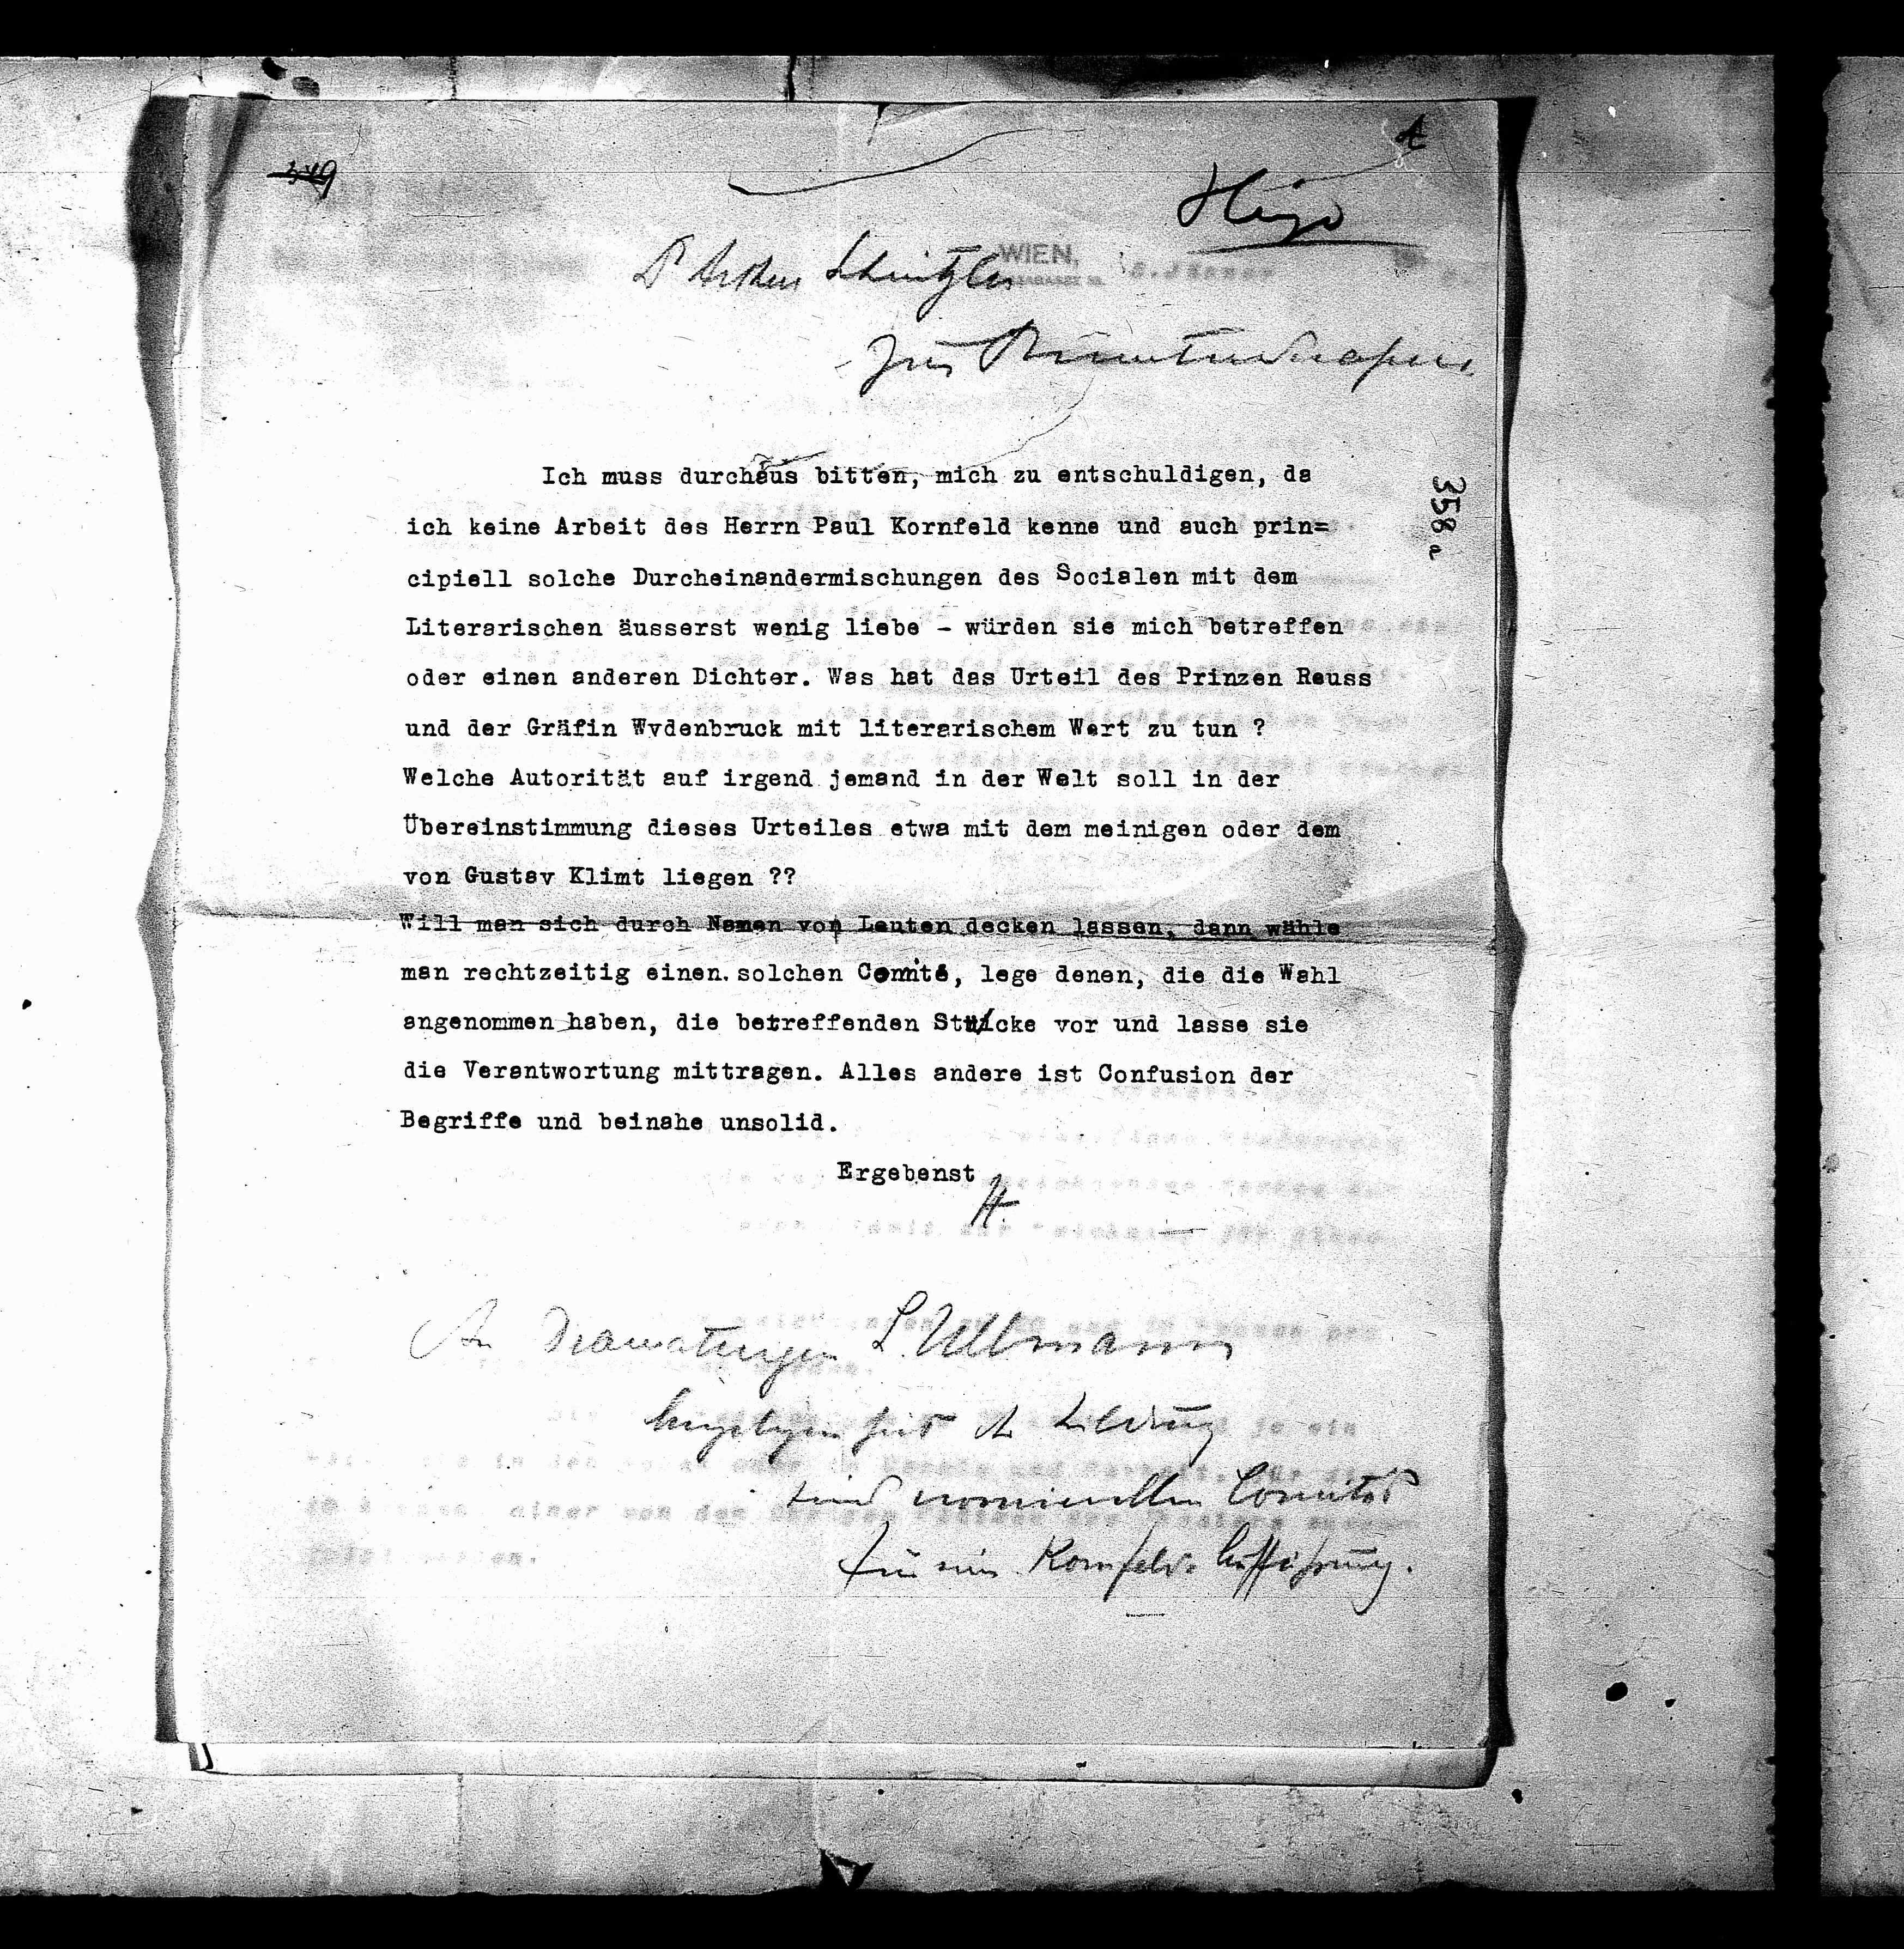 349
Hugo
Dr Arthur Schnitzler
WIEN,
zur Kenntnisnahme.
358a
Ich muss durchaus bitten, mich zu entschuldigen, da
ich keine Arbeit des Herrn Paul Kornfeld kenne und auch prin=
cipiell solche Durcheinandermischungen des Socialen mit dem
Literarischen äusserst wenig liebe – würden sie mich betreffen
oder einen anderen Dichter. Was hat das Urteil des Prinzen Reuss
und der Gräfin Wydenbruck mit literarischem Wert zu tun ?
Welche Autorität auf irgend jemand in der Welt soll in der
Übereinstimmung dieses Urteiles etwa mit dem meinigen oder dem
von Gustav Klimt liegen ??
Will man sich durch Namen von Leuten decken lassen, dann wähle
man rechtzeitig einen solchen Comité, lege denen, die die Wahl
angenommen haben, die betreffenden Stücke vor und lasse sie
die Verantwortung mittragen. Alles andere ist Confusion der
Begriffe und beinahe unsolid.
Ergebenst
H.
An Dramaturgen L. Ullmann
Angelegenheit der Bildung
eines nominellen Comités
für eine Kornfeld-Aufführung.